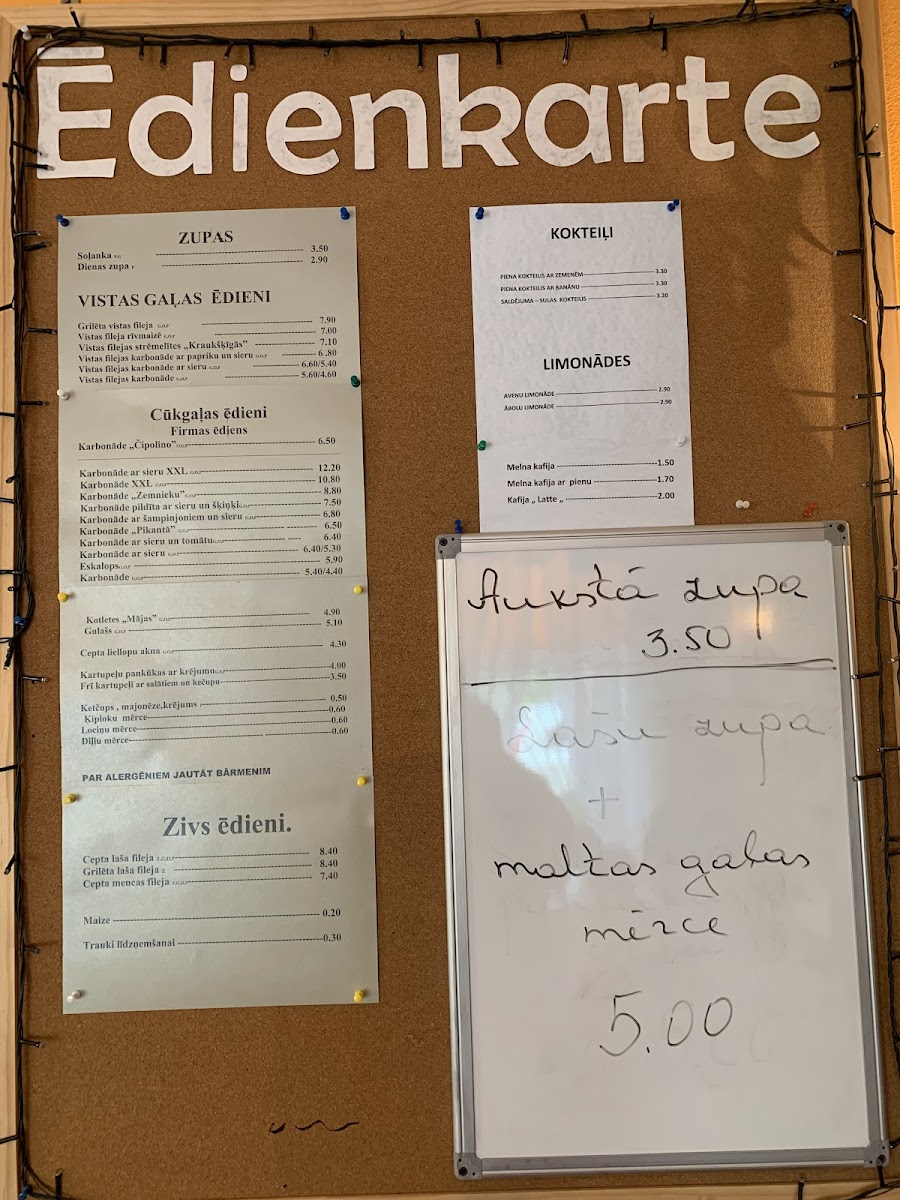 Ēdienkarte
ZUPAS
Soļanka 3.50
Dienas zupa 2.90
VISTAS GAĻAS ĒDIENI
Grilēta vistas fileja G.O.P 7.90
Vistas fileja rīvmaizē G.O.P 7.00
Vistas filejas strēmelītes „Kraukšķīgās" 7.10
Vistas filejas karbonāde ar papriku un sieru G.O.P 6.80
Vistas filejas karbonāde ar sieru G.O.P 6.60/5.40
Vistas filejas karbonāde G.O.P 5.60/4.60
Cūkgaļas ēdieni
Firmas ēdiens
Karbonāde „Čipolino" G.O.P 6.50
Karbonāde ar sieru XXL G.O.P 12.20
Karbonāde XXL G.O.P 10.80
Karbonāde „Zemnieku" G.O.P 8.80
Karbonāde pildīta ar sieru un šķiņķi G.O.P 7.50
Karbonāde ar šampinjoniem un sieru G.O.P 6.80
Karbonāde „Pikantā" G.O.P 6.50
Karbonāde ar sieru un tomātu G.O.P 6.40
Karbonāde ar sieru G.O.P 6.40/5.30
Eskalops G.O.P 5.90
Karbonāde G.O.P 5.40/4.40
Kotletes „Mājas" G.O.P 4.90
Gulašs G.O.P 5.10
Cepta liellopu akna G.O.P 4.30
Kartupeļu pankūkas ar krējumu G.O.P 4.00
Frī kartupeļi ar salātiem un kečupu 3.50
Ketčups , majonēze,krējums 0.50
Ķiploku mērce 0.60
Lociņu mērce 0.60
Diļļu mērce 0.60
PAR ALERGĒNIEM JAUTĀT BĀRMENIM
Zivs ēdieni.
Cepta laša fileja Z.G.O.P 8.40
Grilēta laša fileja Z 8.40
Cepta mencas fileja Z.G.O.P 7.40
Maize 0.20
Trauki līdzņemšanai 0.30
KOKTEIĻI
PIENA KOKTEILIS AR ZEMENĒM 3.30
PIENA KOKTEILIS AR BANĀNU 3.30
SALDĒJUMA – SULAS KOKTEILIS 3.30
LIMONĀDES
AVEŅU LIMONĀDE 2.90
ĀBOLU LIMONĀDE 2.90
Melna kafija 1.50
Melna kafija ar pienu 1.70
Kafija „ Latte „ 2.00
Aukstā zupa
3.50
Lašu zupa
+
maltas gaļas
mērce
5.00